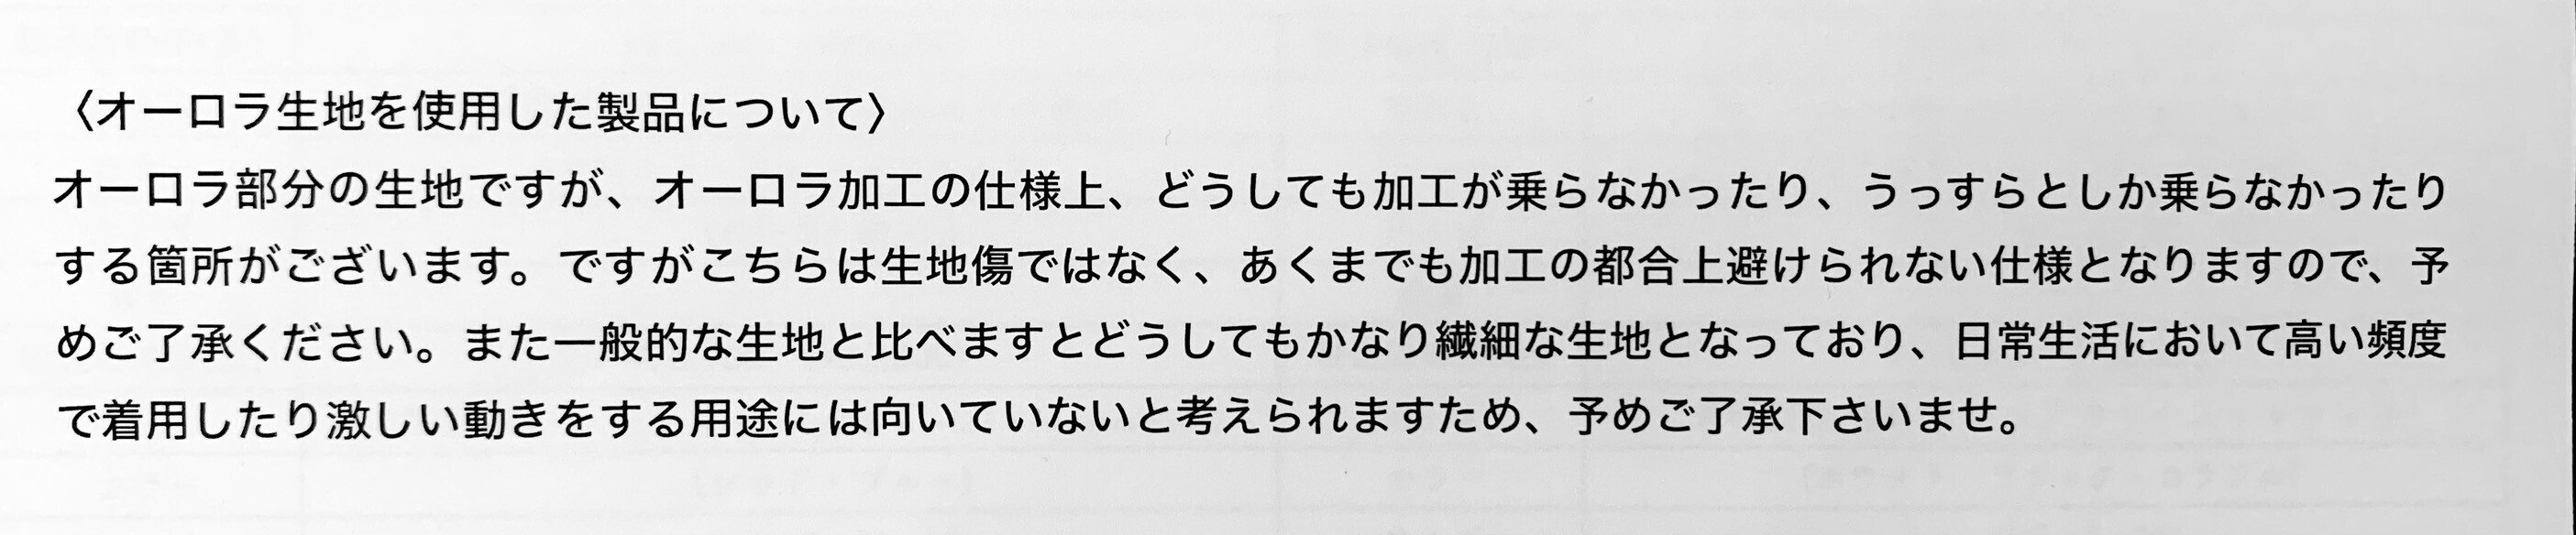 〈オーロラ生地を使用した製品について〉
オーロラ部分の生地ですが、オーロラ加工の仕様上、どうしても加工が乗らなかったり、うっすらとしか乗らなかったり
する箇所がございます。ですがこちらは生地傷ではなく、あくまでも加工の都合上避けられない仕様となりますので、予
めご了承ください。また一般的な生地と比べますとどうしてもかなり繊細な生地となっており、日常生活において高い頻度
で着用したり激しい動きをする用途には向いていないと考えられますため、予めご了承下さいませ。